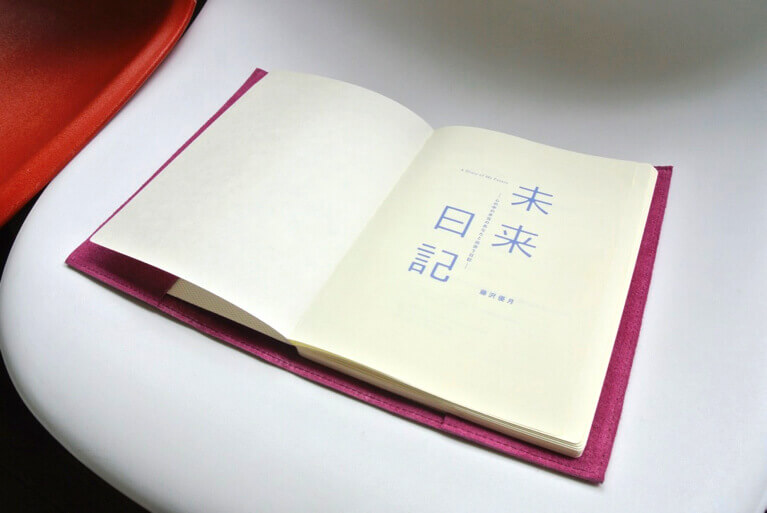 A Diary of My Future
未来
日記
藤沢優月